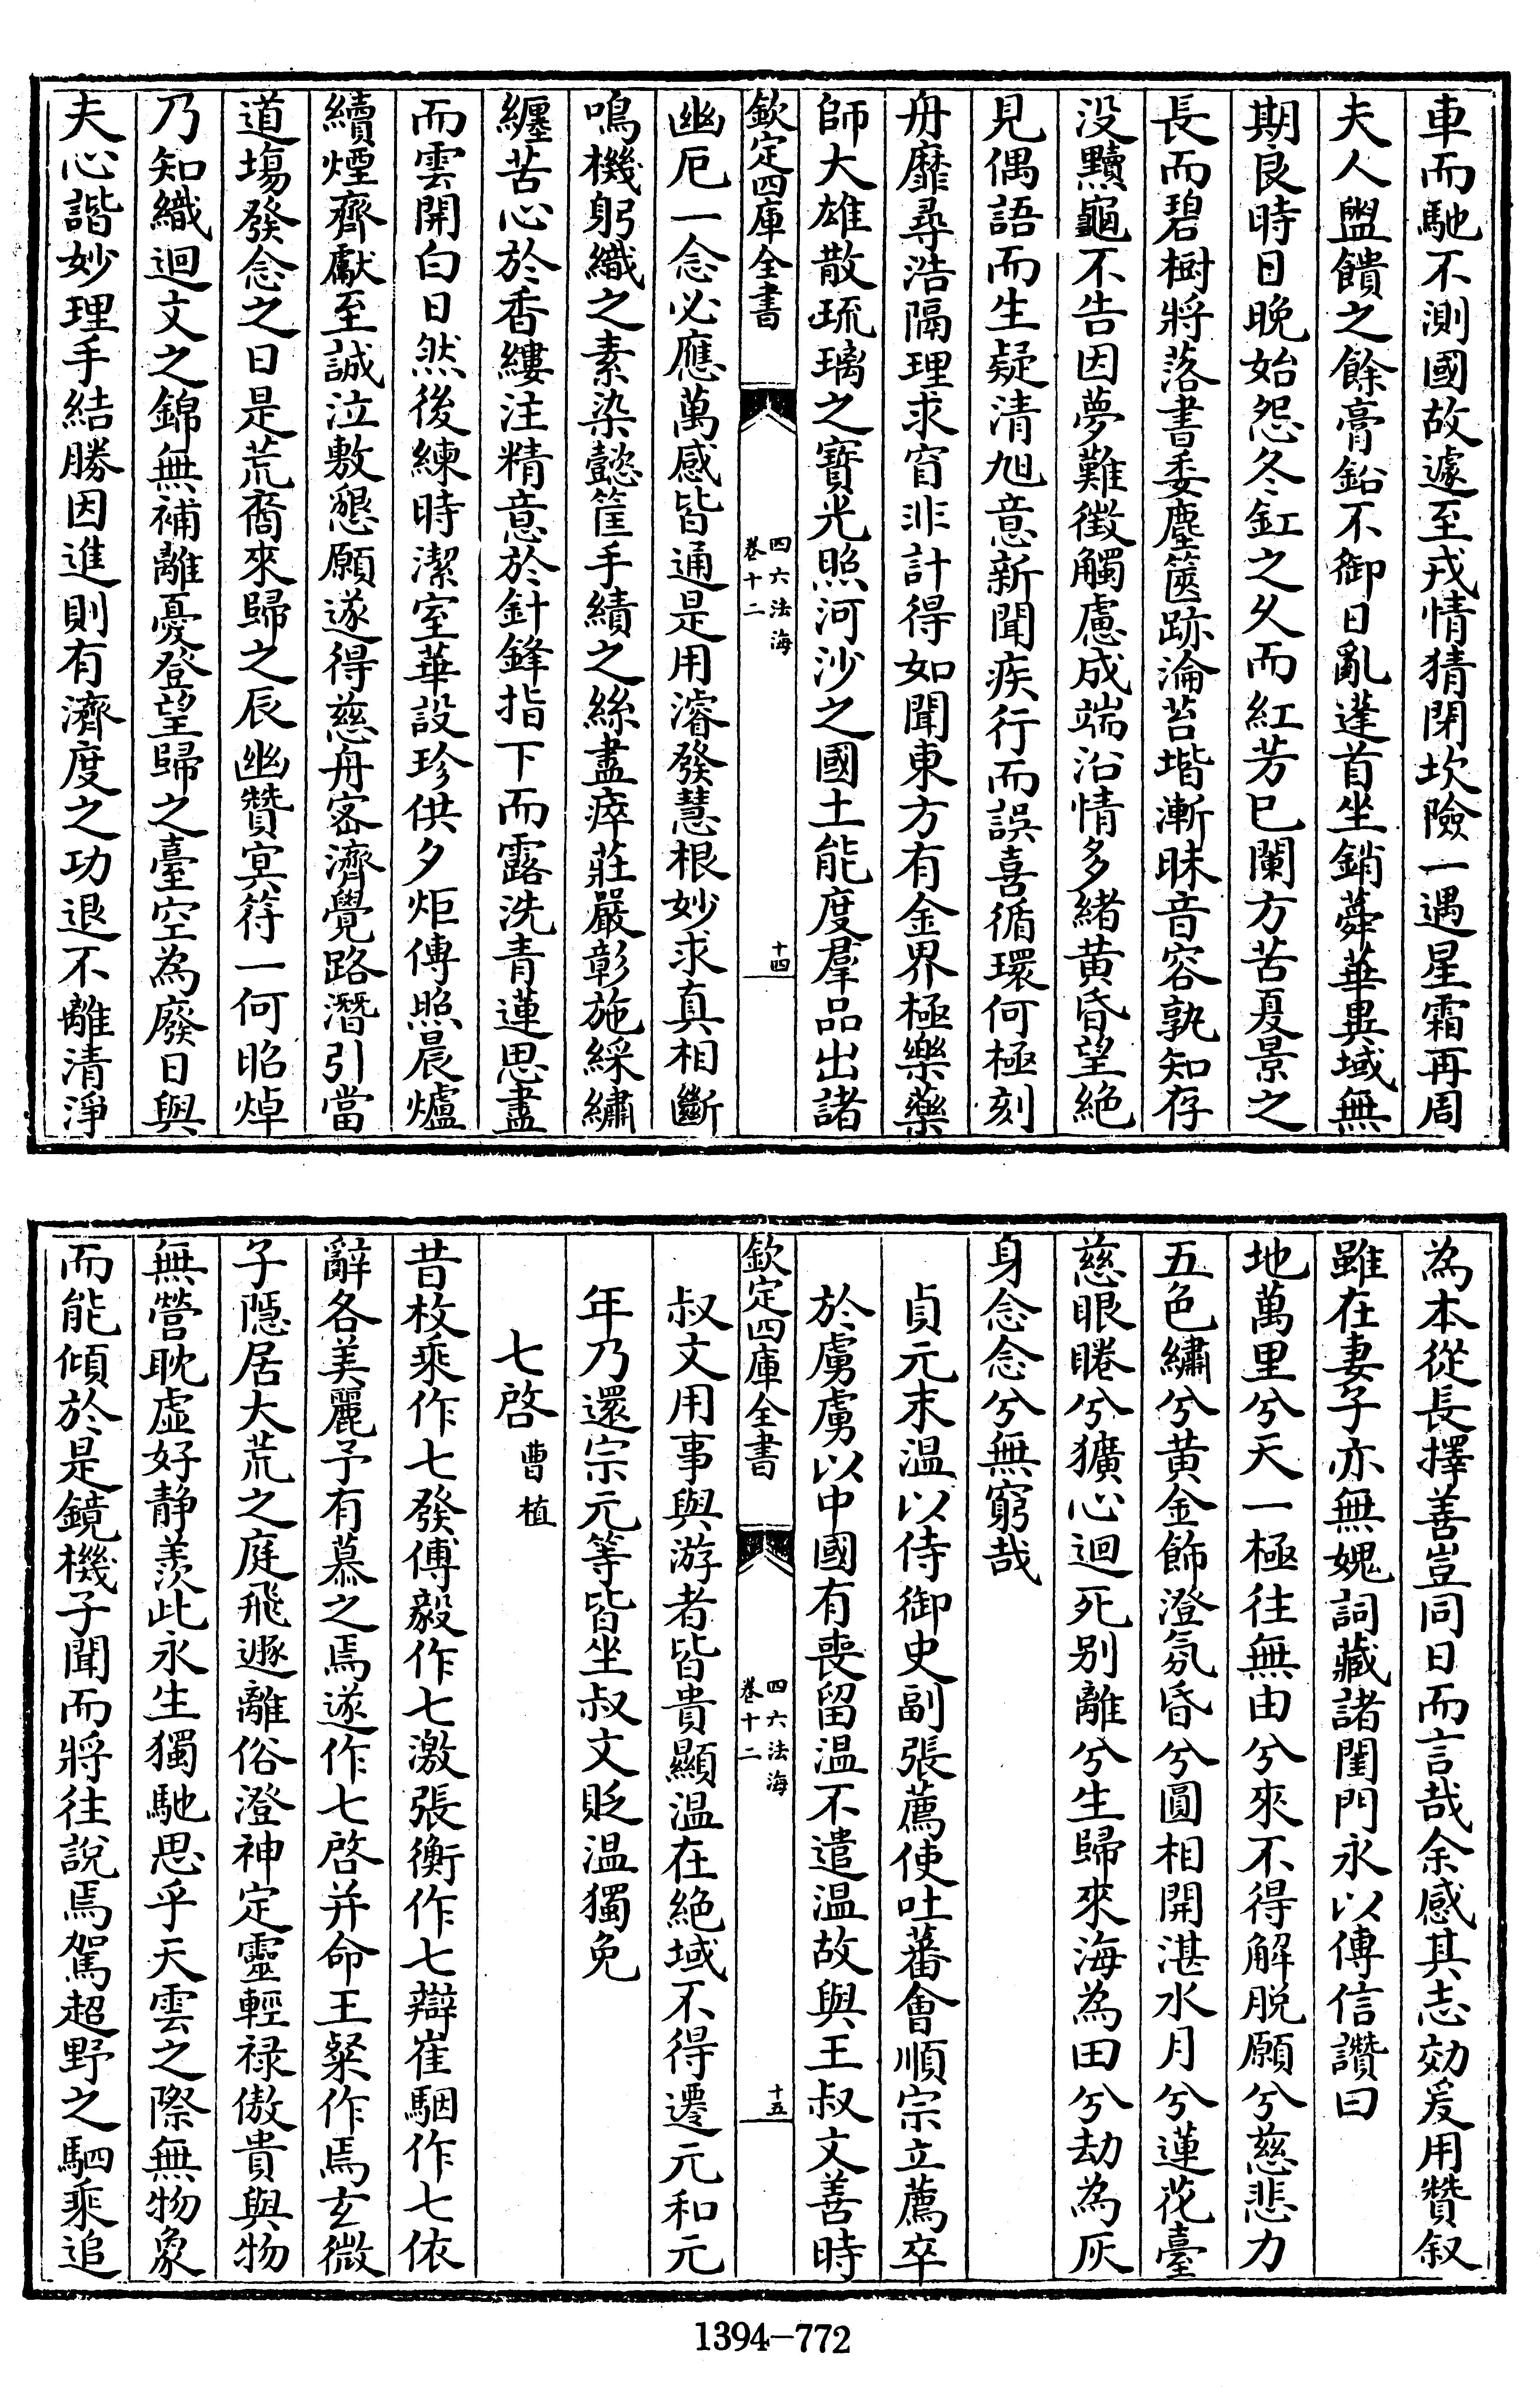 車而馳不測國故遽至戎情猜閉坎險一遇星霜再周
夫人盥饋之餘膏鉛不御日亂蓬首坐銷蕣華異域無
期良時日晚始怨冬釭之夂而紅芳已闌方苦夏景之
長而碧樹將落書委塵篋跡淪苔堦漸昧音容孰知存
沒黷龜不告因夢難徵觸慮成端沿情多緒黄昏望絶
見偶語而生疑清旭意新聞疾行而誤喜循環何極刻
舟靡尋浩隔理求窅非計得如聞東方有金界極樂藥
師大雄散琉璃之寶光照河沙之國土能度羣品出諸
欽定四庫全書
四六法海
卷十二
十四
幽厄一念必應萬感皆通是用濬發慧根妙求真相斷
鳴機躬織之素染懿筐手績之絲盡瘁莊嚴彰施綵繡
纒苦心於香縷注精意於針鋒指下而露洗青蓮思盡
而雲開白日然後練時潔室華設珍供夕炬傳照晨爐
續煙齊獻至誠泣敷懇願遂得慈舟密濟覺路潛引當
道場發念之日是荒裔來歸之辰幽贊冥符一何昭焯
乃知織迴文之錦無補離憂登望歸之臺空為廢日與
夫心諧妙理手結勝因進則有濟度之功退不離清淨
為本從長擇善豈同日而言哉余感其志効爰用贊叙
雖在妻子亦無媿詞藏諸閨門永以傳信讚曰
地萬里兮天一極往無由兮來不得解脱願兮慈悲力
五色繡兮黄金飾澄氛昏兮圓相開湛水月兮蓮花臺
慈眼睠兮獷心迴死别離兮生歸來海為田兮劫為灰
身念念兮無窮哉
貞元末温以侍御史副張薦使吐蕃會順宗立薦卒
於虜虜以中國有喪留温不遣温故與王叔文善時
欽定四庫全書
四六法海
卷十二
十五
叔文用事與游者皆貴顯温在絶域不得遷元和元
年乃還宗元等皆坐叔文貶温獨免
七啓 曹植
昔枚乘作七發傅毅作七激張衡作七辯崔駰作七依
辭各美麗予有慕之焉遂作七啓并命王粲作焉玄微
子隱居大荒之庭飛遯離俗澄神定靈輕禄傲貴與物
無營耽虚好静羨此永生獨馳思乎天雲之際無物象
而能傾於是鏡機子聞而將往說焉駕超野之駟乘追
1394-772